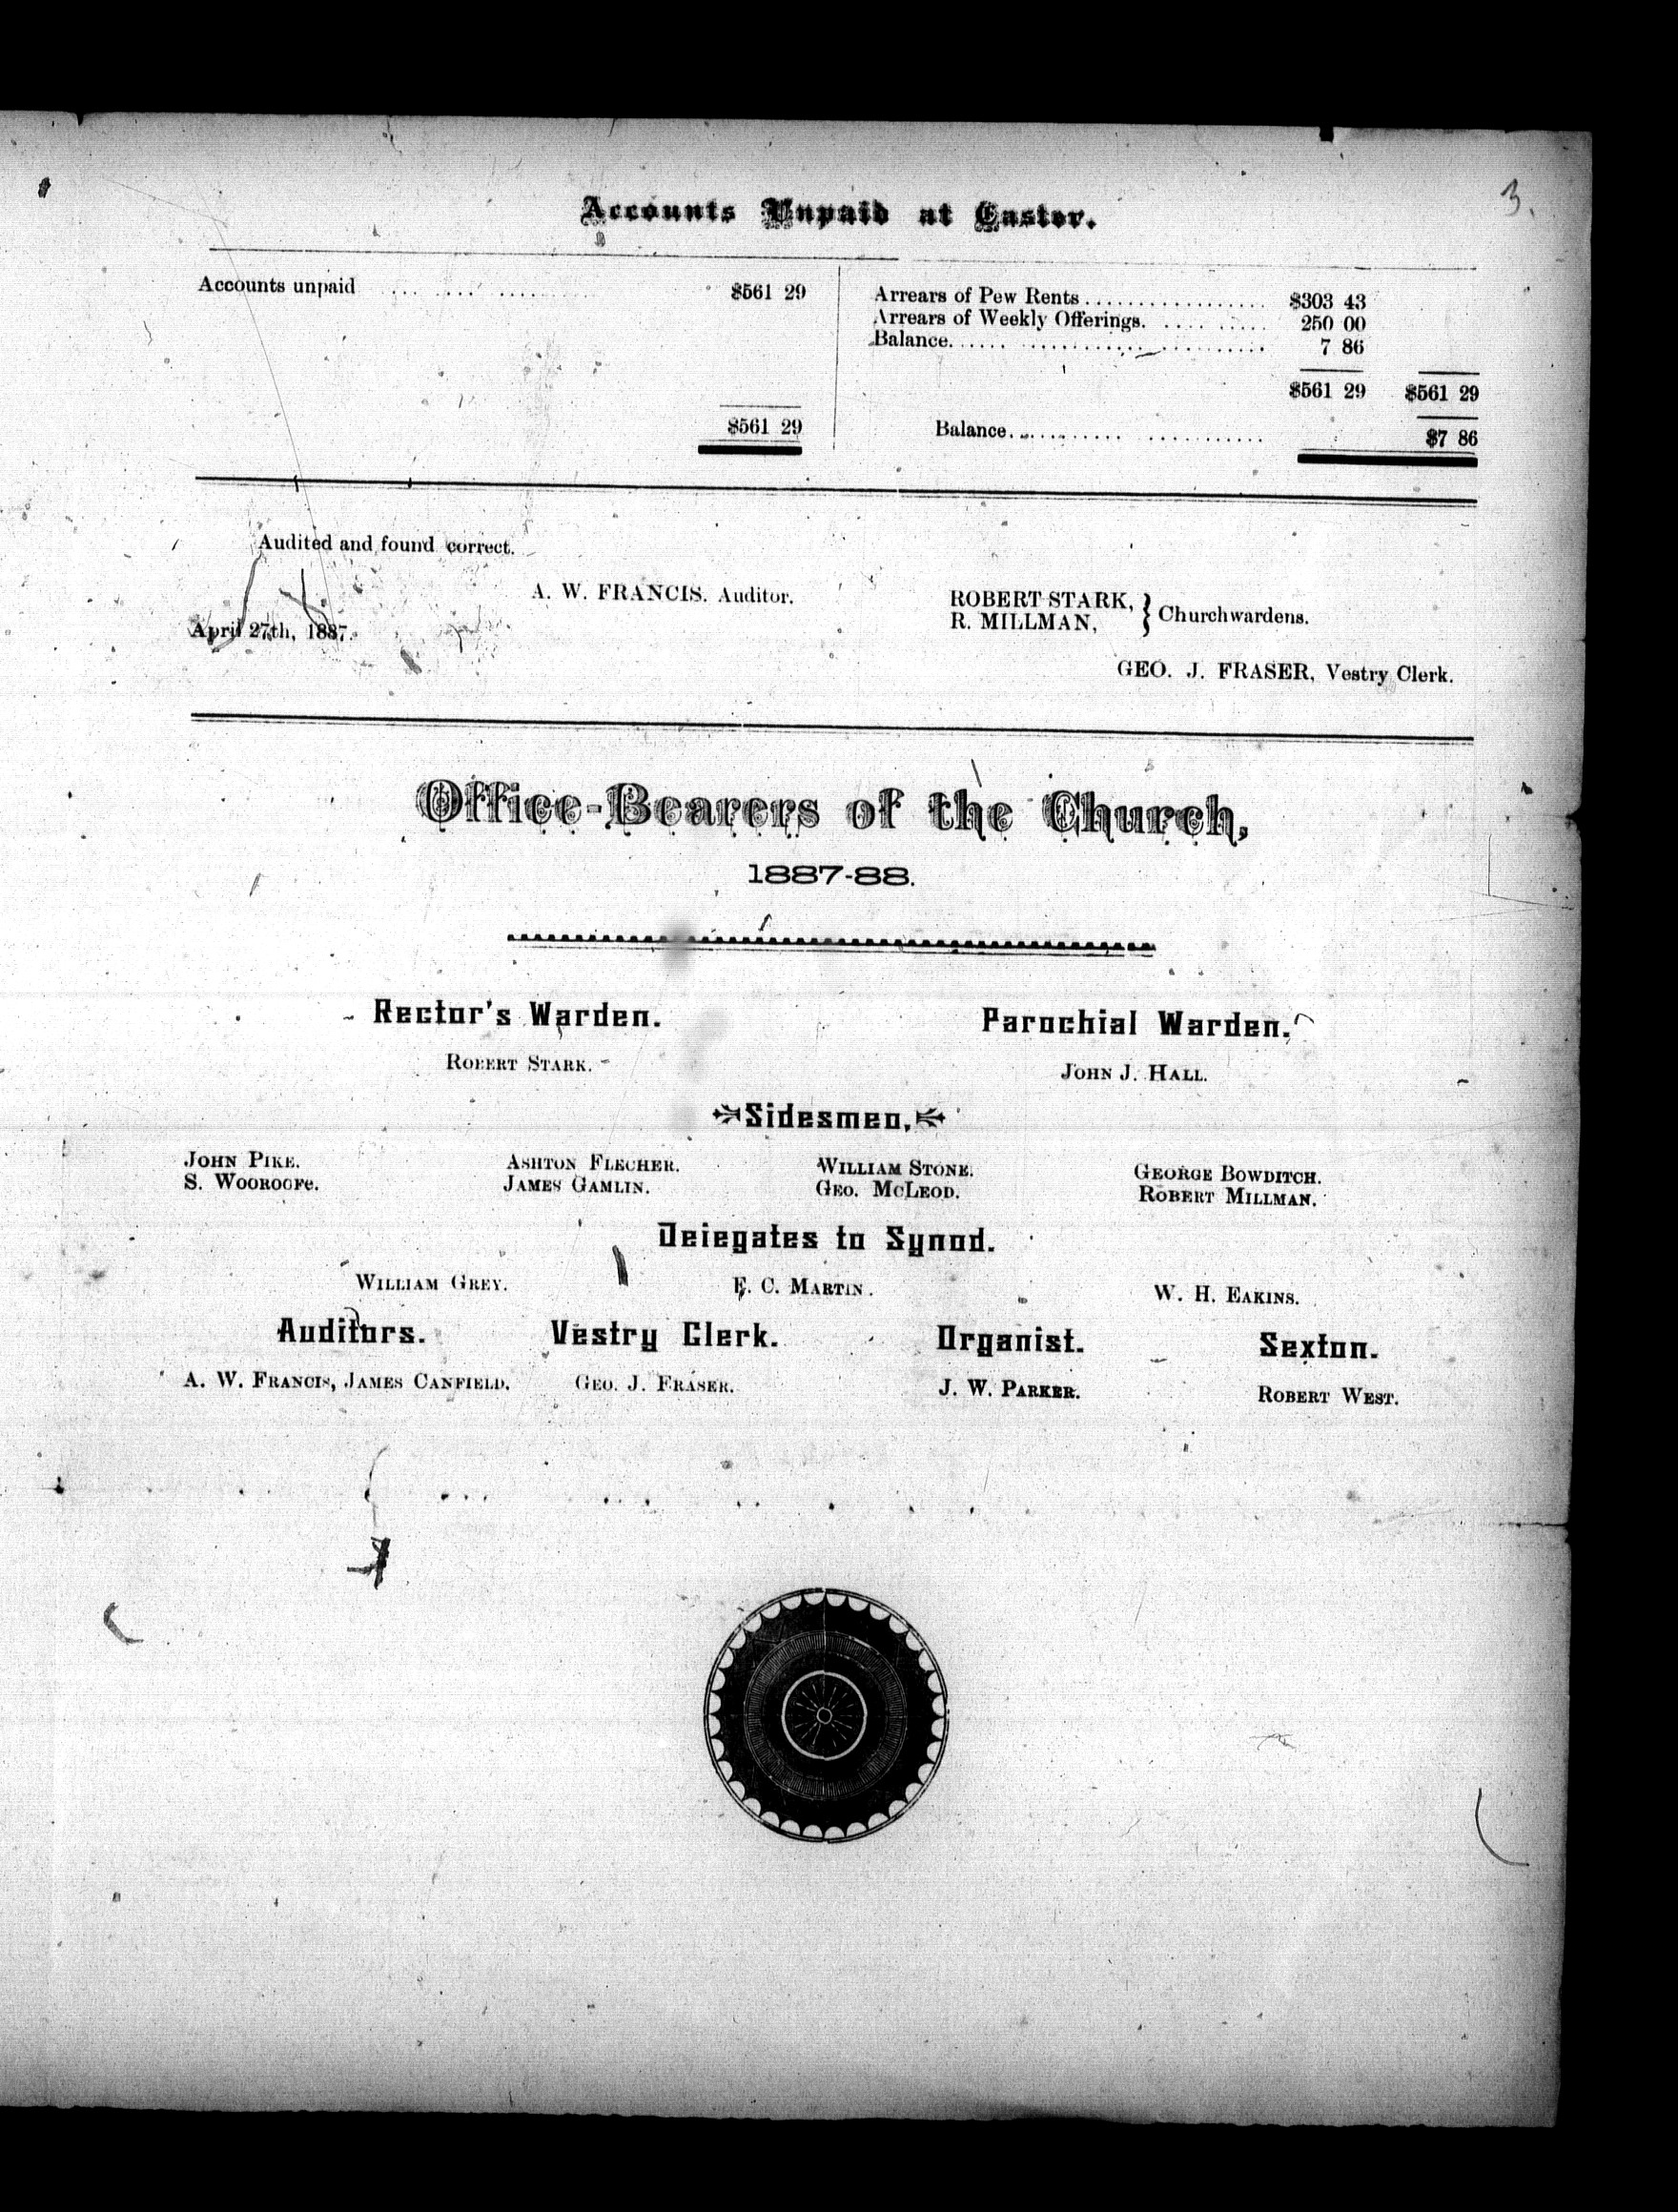 3.
Accounts Unpaid at Easter.
Accounts unpaid .... .... .......... $561 29
$561 29
Arrears of Pew Rents.................. $303 43
Arrears of Weekly Offerings. ..... ..... 250 00
Balance...... ............. ........... 7 86
$561 29 $561 29
Balance............ ............ $7 86
Audited and found correct.
A. W. FRANCIS. Auditor.
April 27th, 1887.
ROBERT STARK, } Churchwardens.
R. MILLMAN,
GEO. J. FRASER, Vestry Clerk.
Office-Bearers of the Church,
1887-88.
Rector's Warden. Parochial Warden.
ROBERT STARK. JOHN J. HALL.
Sidesmen.
JOHN PIKE. ASHTON FLECHER. WILLIAM STONE. GEORGE BOWDITCH.
S. WOOROOFE. JAMES GAMLIN. GEO. MCLEOD. ROBERT MILLMAN.
Delegates to Synod.
WILLIAM GREY. E. C. MARTIN. W. H. EAKINS.
Auditors. Vestry Clerk. Organist. Sexton.
A. W. FRANCIS, JAMES CANFIELD. GEO. J. FRASER. J. W. PARKER. ROBERT WEST.